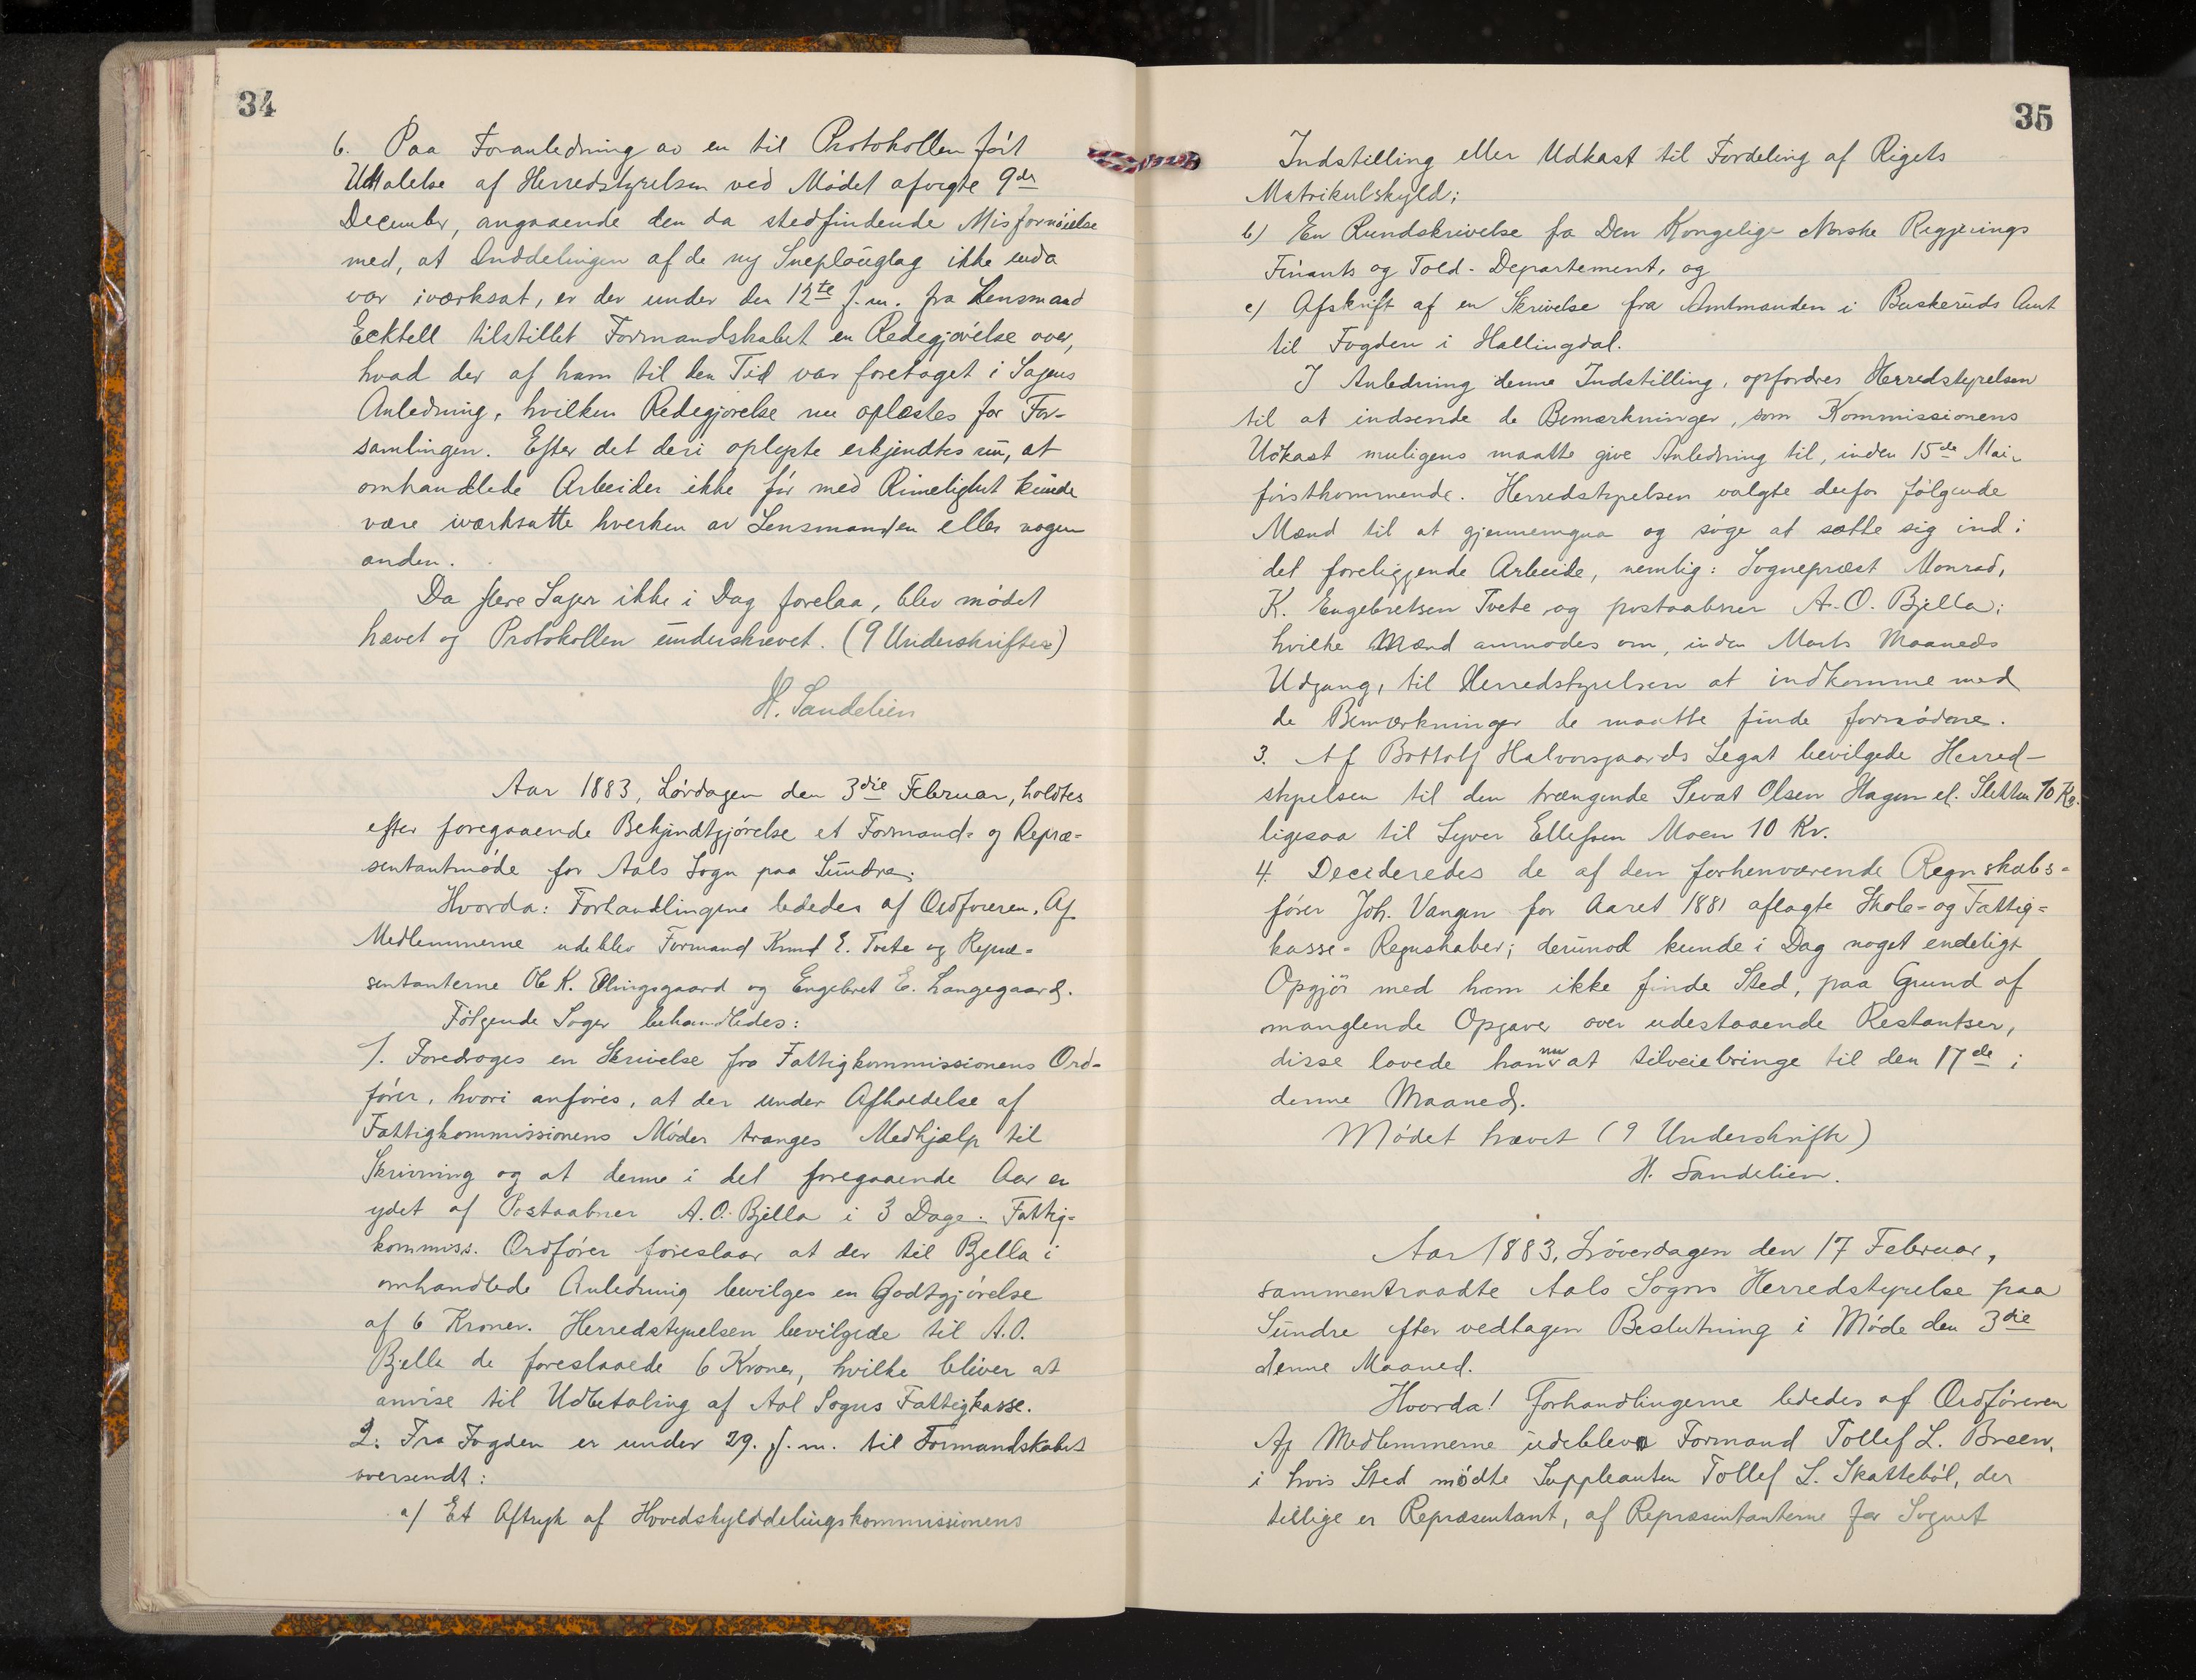 34
6. Paa Foranledning av en til Protokollen ført
Udtalelse af Herredstyrelsen ved Mødet afvigte 9de
December, angaaende den da stedfindende Misfornøielse
med, at Inddelingen af de ny Sneplouglag ikke enda
var iværksat, er der under den 12te f.m. fra Lensmand
Ecktell tilstillet Formandskabet en Redegjørelse over,
hvad der af ham til den Tid var foretaget i Sagens
Anledning, hvilken Redegjørelse nu oplæstes for For-
samlingen. Efter det deri oplyste erkjendtes nu, at
omhandlede Arbeider ikke før med Rimelighet kunde
være iværksatte hverken av Lensmanden eller nogen
anden.
Da flere Sager ikke i Dag forelaa, blev mødet
hævet og Protokollen underskrevet. (9 Underskrifter)
H. Sandelien
Aar 1883, Lørdagen den 3die Februar, holdtes
efter foregaaende Bekjendtgjørelse et Formand- og Repræ-
sentantmøde for Aals Sogn paa Sundre.
Hvorda: Forhandlingene lededes af Ordføreren. Af
Medlemmerne udeblev Formand Knud E. Tvete og Repræ-
sentanterne Ole K. Ellingsgaard og Engebret E. Langegaard.
Følgende Sager behandledes:
1. Foredroges en Skrivelse fra Fattigkommissionens Ord-
fører, hvori anføres, at der under Afholdelse af
Fattigkommissionens Møder trænges Medhjælp til
Skrivning og at denne i det foregaaende Aar er
ydet af Postaabner A.O. Bjella i 3 Dage. Fattig-
kommiss. Ordfører foreslaar at der til Bjella i
omhandlede Anledning bevilges en Godtgjørelse
af 6 Kroner. Herredstyrelsen bevilgede til A.O.
Bjella de foreslaaede 6 Kroner, hvilke bliver at
anvise til Udbetaling af Aal Sogns Fattigkasse.
2. Fra Fogden er under 29. f.m. til Formandskabet
oversendt:
a) Et Aftryk af Hovedskylddelingskommissionens
35
Indstilling eller Udkast til Fordeling af Rigets
Matrikulskyld;
b) En Rundskrivelse fa Den Kongelige Norske Regjerings
Finants og Told-Departement, og
c) Afskrift af en Skrivelse fra Amtmanden i Buskeruds Amt
til Fogden i Hallingdal.
I Anledning denne Indstilling, opfordres Herredstyrelsen
til at indsende de Bemærkninger, som Kommissionens
Udkast muligens maatte give Anledning til, inden 15de Mai
førstkommende. Herredstyrelsen valgte derfor følgende
Mænd til at gjennemgaa og søge at sætte sig ind i
det foreliggende Arbeide, nemlig: Sognepræst Monrad,
K. Engebretsen Tvete og postaabner A.O. Bjella;
hvilke Mænd anmodes om, inden Marts Maaneds
Udgang, til Herredstyrelsen at indkomme med
de Bemærkninger de maatte finde fornødene.
3. Af Bottolf Halvorsgaards Legat bevilgede Herred-
styrelsen til den trængende Sevat Olsen Hagen el. Sletten 10 Kr.
ligesaa til Syver Ellefsen Moen 10 Kr.
4. Decideredes de af den forhenværende Regnskabs-
fører Joh. Vangen for Aaret 1881 aflagte Skole- og Fattig-
kasse-Regnskaber; derimod kunde i Dag noget endeligt
Opgjør med ham ikke finde Sted, paa Grund af
manglende Opgave over udestaaende Restantser,
disse lovede han nu at tilveiebringe til den 17de i
denne Maaned.
Mødet hævet (9 Underskrifter)
H. Sandelien.
Aar 1883, Løverdagen den 17 Februar,
sammentraadte Aals Sogns Herredstyrelse paa
Sundre efter vedtagen Beslutning i Møde den 3die
denne Maaned.
Hvorda! Forhandlingerne lededes af Ordføreren
Af Medlemmerne udeblev Formand Tollef L. Breen,
i hvis Sted mødte Suppleanten Tollef S. Skattebøl, der
tillige er Repræsentant, af Repræsentanterne for Sognet